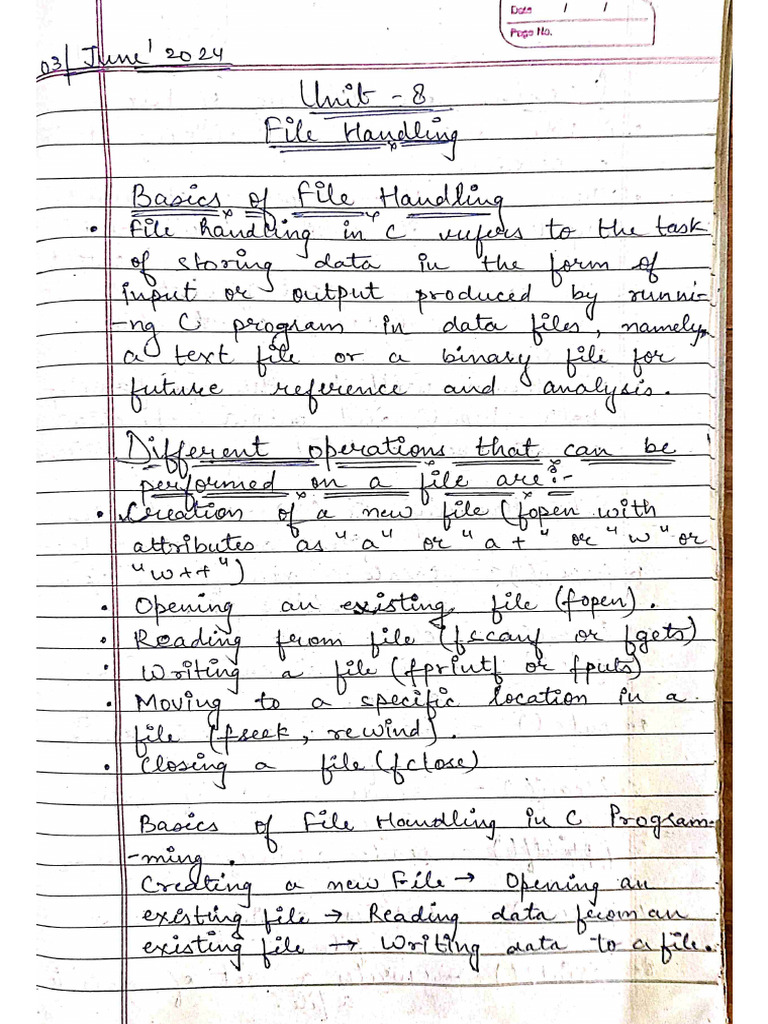 Date / /
Page No.
03/ June' 2024
Unit - 8
File Handling
Basics of File Handling
• File handling in C refers to the task
of storing data in the form of
input or output produced by runni-
-ng C program in data files, namely,
a text file or a binary file for
future reference and analysis.
Different operations that can be
performed on a file are:-
• Creation of a new file (fopen with
attributes as "a" or "a+" or "w" or
"w++")
• Opening an existing file (fopen).
• Reading from file (fscanf or fgets)
• Writing a file (fprintf or fputs)
• Moving to a specific location in a
file (fseek, rewind).
• Closing a file (fclose)
Basics of File Handling in C Program-
-ming.
Creating a new File → Opening an
existing file → Reading data from an
existing file → Writing data to a file.